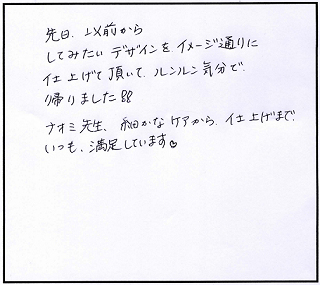 先日、以前から
してみたいデザインを、イメージ通りに
仕上げて頂いて、ルンルン気分で
帰りました!!
ナオミ先生、細かなケアから、仕上げまで
いつも、満足しています♡